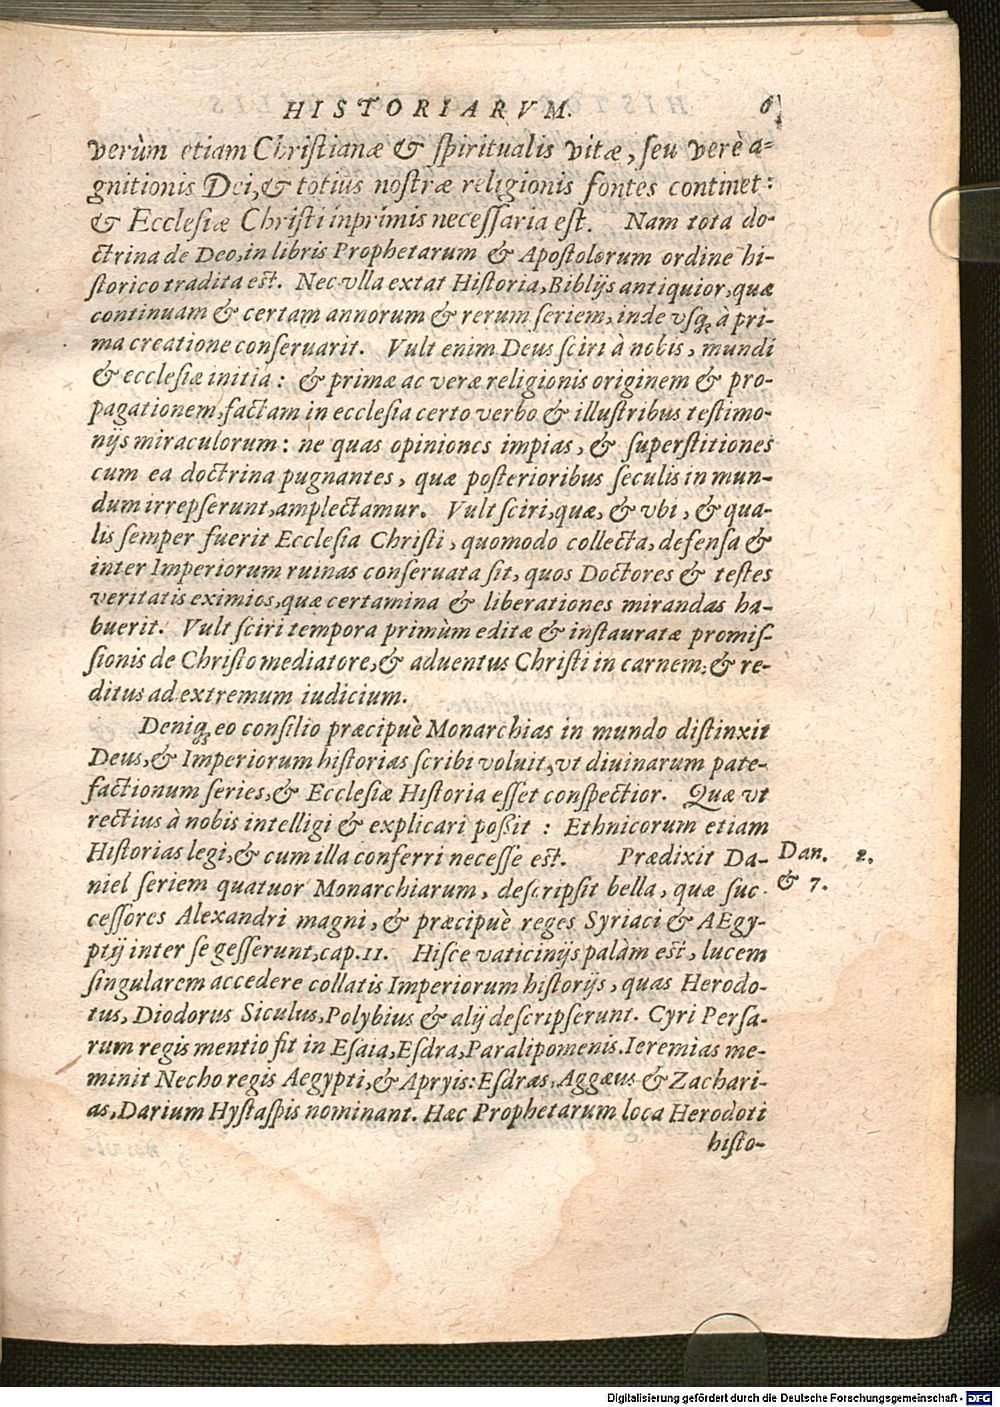 HISTORIARVM. 6
verùm etiam Chriſtianæ & ſpiritualis vitæ, ſeu verè a=
gnitionis Dei, & totius noſtræ religionis fontes continet:
& Eccleſiæ Chriſti inprimis neceſſaria eſt. Nam tota do-
ctrina de Deo, in libris Prophetarum & Apoſtolorum ordine hi-
ſtorico tradita eſt. Nec vlla extat Hiſtoria, Biblijs antiquior, quæ
continuam & certam annorum & rerum ſeriem, inde vſq; à pri-
ma creatione conſeruarit. Vult enim Deus ſciri à nobis, mundi
& eccleſiæ initia: & primæ ac veræ religionis originem & pro-
pagationem, factam in eccleſia certo verbo & illuſtribus teſtimo-
nijs miraculorum: ne quas opiniones impias, & ſuperſtitiones
cum ea doctrina pugnantes, quæ poſterioribus ſeculis in mun-
dum irrepſerunt, amplectamur. Vult ſciri, quæ, & vbi, & qua-
lis ſemper fuerit Eccleſia Chriſti, quomodo collecta, defenſa &
inter Imperiorum ruinas conſeruata ſit, quos Doctores & teſtes
veritatis eximios, quæ certamina & liberationes mirandas ha-
buerit. Vult ſciri tempora primùm editæ & inſtauratæ promiſ-
ſionis de Chriſto mediatore, & aduentus Chriſti in carnem, & re-
ditus ad extremum iudicium.
Deniq; eo conſilio præcipuè Monarchias in mundo diſtinxit
Deus, & Imperiorum hiſtorias ſcribi voluit, vt diuinarum pate-
factionum ſeries, & Eccleſiæ Hiſtoria eſſet conſpectior. Quæ vt
rectius à nobis intelligi & explicari poßit: Ethnicorum etiam
Hiſtorias legi, & cum illa conferri neceſſe eſt. Prædixit Da-
Dan. 2.
niel ſeriem quatuor Monarchiarum, deſcripſit bella, quæ ſuc-
& 7.
ceſſores Alexandri magni, & præcipuè reges Syriaci & AEgy-
ptij inter ſe geſſerunt, cap. 11. Hiſce vaticinijs palàm eſt, lucem
ſingularem accedere collatis Imperiorum hiſtorijs, quas Herodo-
tus, Diodorus Siculus, Polybius & alij deſcripſerunt. Cyri Perſa-
rum regis mentio fit in Eſaia, Eſdra, Paralipomenis. Ieremias me-
minit Necho regis Aegypti, & Apryis: Eſdras, Aggæus & Zachari-
as, Darium Hyſtaſpis nominant. Hæc Prophetarum loca Herodoti
hiſto-
Digitalisierung gefördert durch die Deutsche Forschungsgemeinschaft - DFG